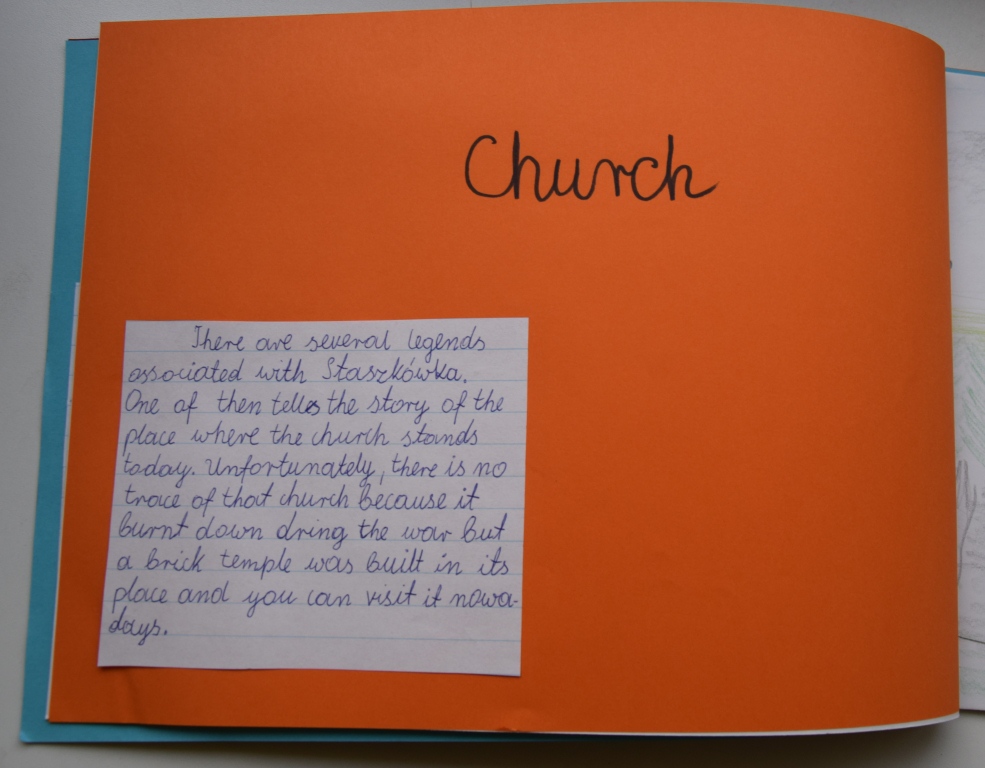 Church
There are several legends
associated with Staszkówka.
One of then tells the story of the
place where the church stands
today. Unfortunately, there is no
trace of that church because it
burnt down dring the war but
a brick temple was built in its
place and you can visit it nowa-
days.